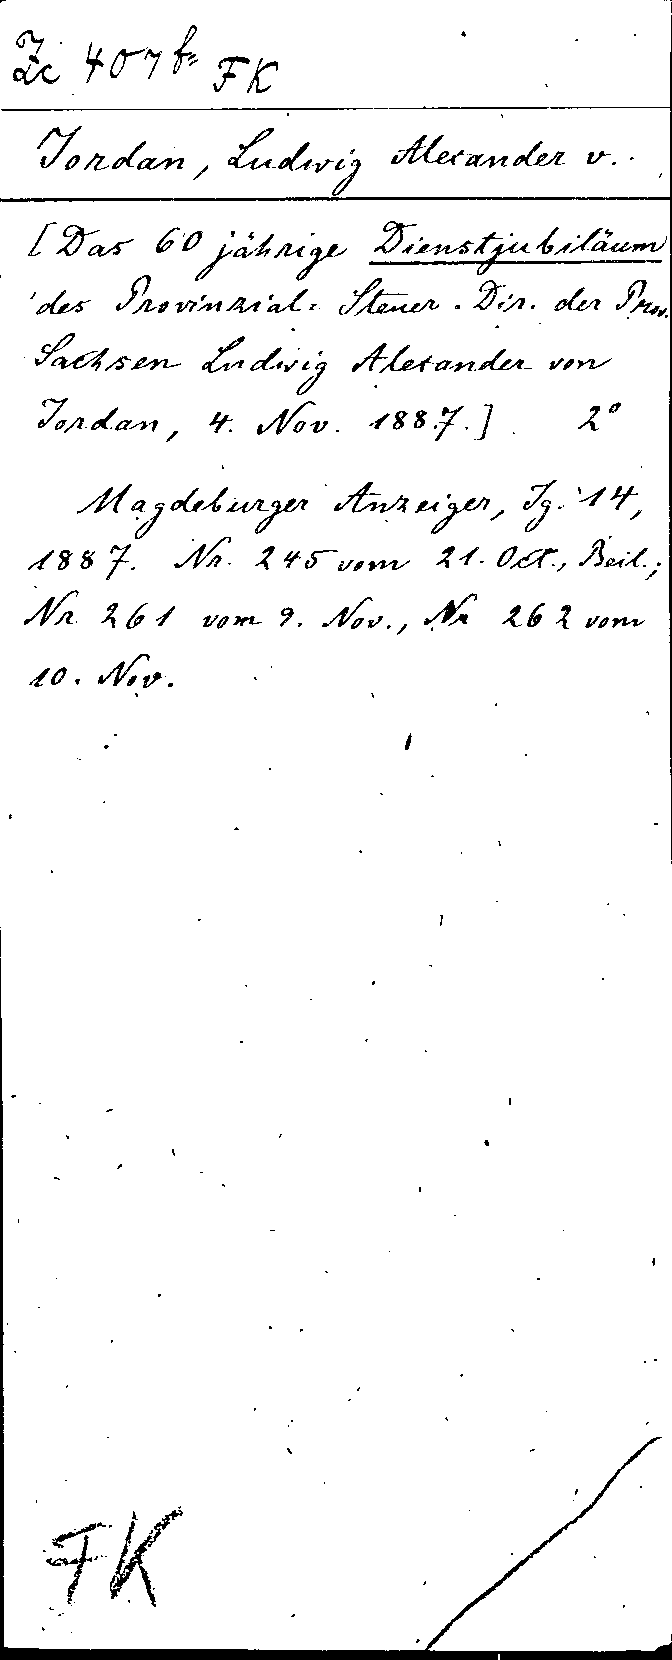 Zc 407 b= FK
Jordan, Ludwig Alexander v.
[Das 60 jährige Dienstjubiläum
des Provinzial-Steuer-Dir. der Prov.
Sachsen Ludwig Alexander von
Jordan, 4. Nov. 1887.] 2°
Magdeburger Anzeiger, Jg. 14,
1887. Nr. 245 vom 21. Oct., Beil.;
Nr. 261 vom 9. Nov., Nr 262 vom
10. Nov.
FK